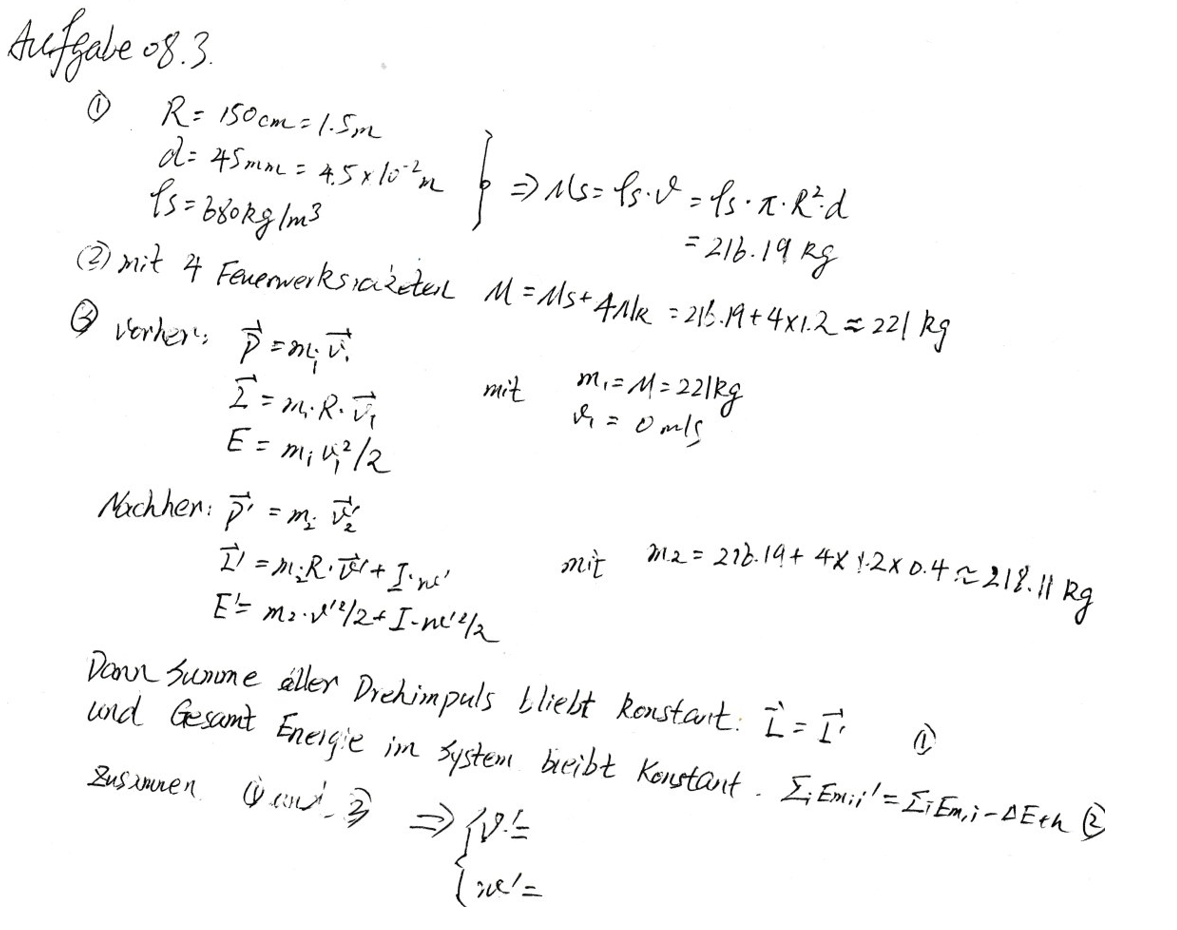 Aufgabe 08.3.
① R = 150cm = 1.5m
d = 45mm = 4.5 x 10⁻² m
ρs = 680kg/m³
⇒ Ms = ρs·V = ρs·π·R²·d
= 216.19 kg
② mit 4 Feuerwerksraketen M = Ms + 4MR = 216.19 + 4x1.2 ≈ 221 kg
③ vorher: p⃗ = m₁ v⃗₁
L⃗ = m₁·R·v⃗₁ mit m₁ = M = 221kg
E = m₁ v₁²/2 v₁ = 0 m/s
Nachher: p⃗' = m₂ v⃗₂'
L⃗' = m₂R·v⃗' + I·w' mit m₂ = 216.19 + 4x1.2x0.4 ≈ 218.11 kg
E' = m₂·v'²/2 + I·w'²/2
Dann Summe aller Drehimpuls bliebt konstant: L⃗ = L⃗' ①
und Gesamt Energie im System bleibt Konstant. Σᵢ Em,i' = Σᵢ Em,i - ΔEth ②
Zusammen ① und ② ⇒ { v' =
{ w' =